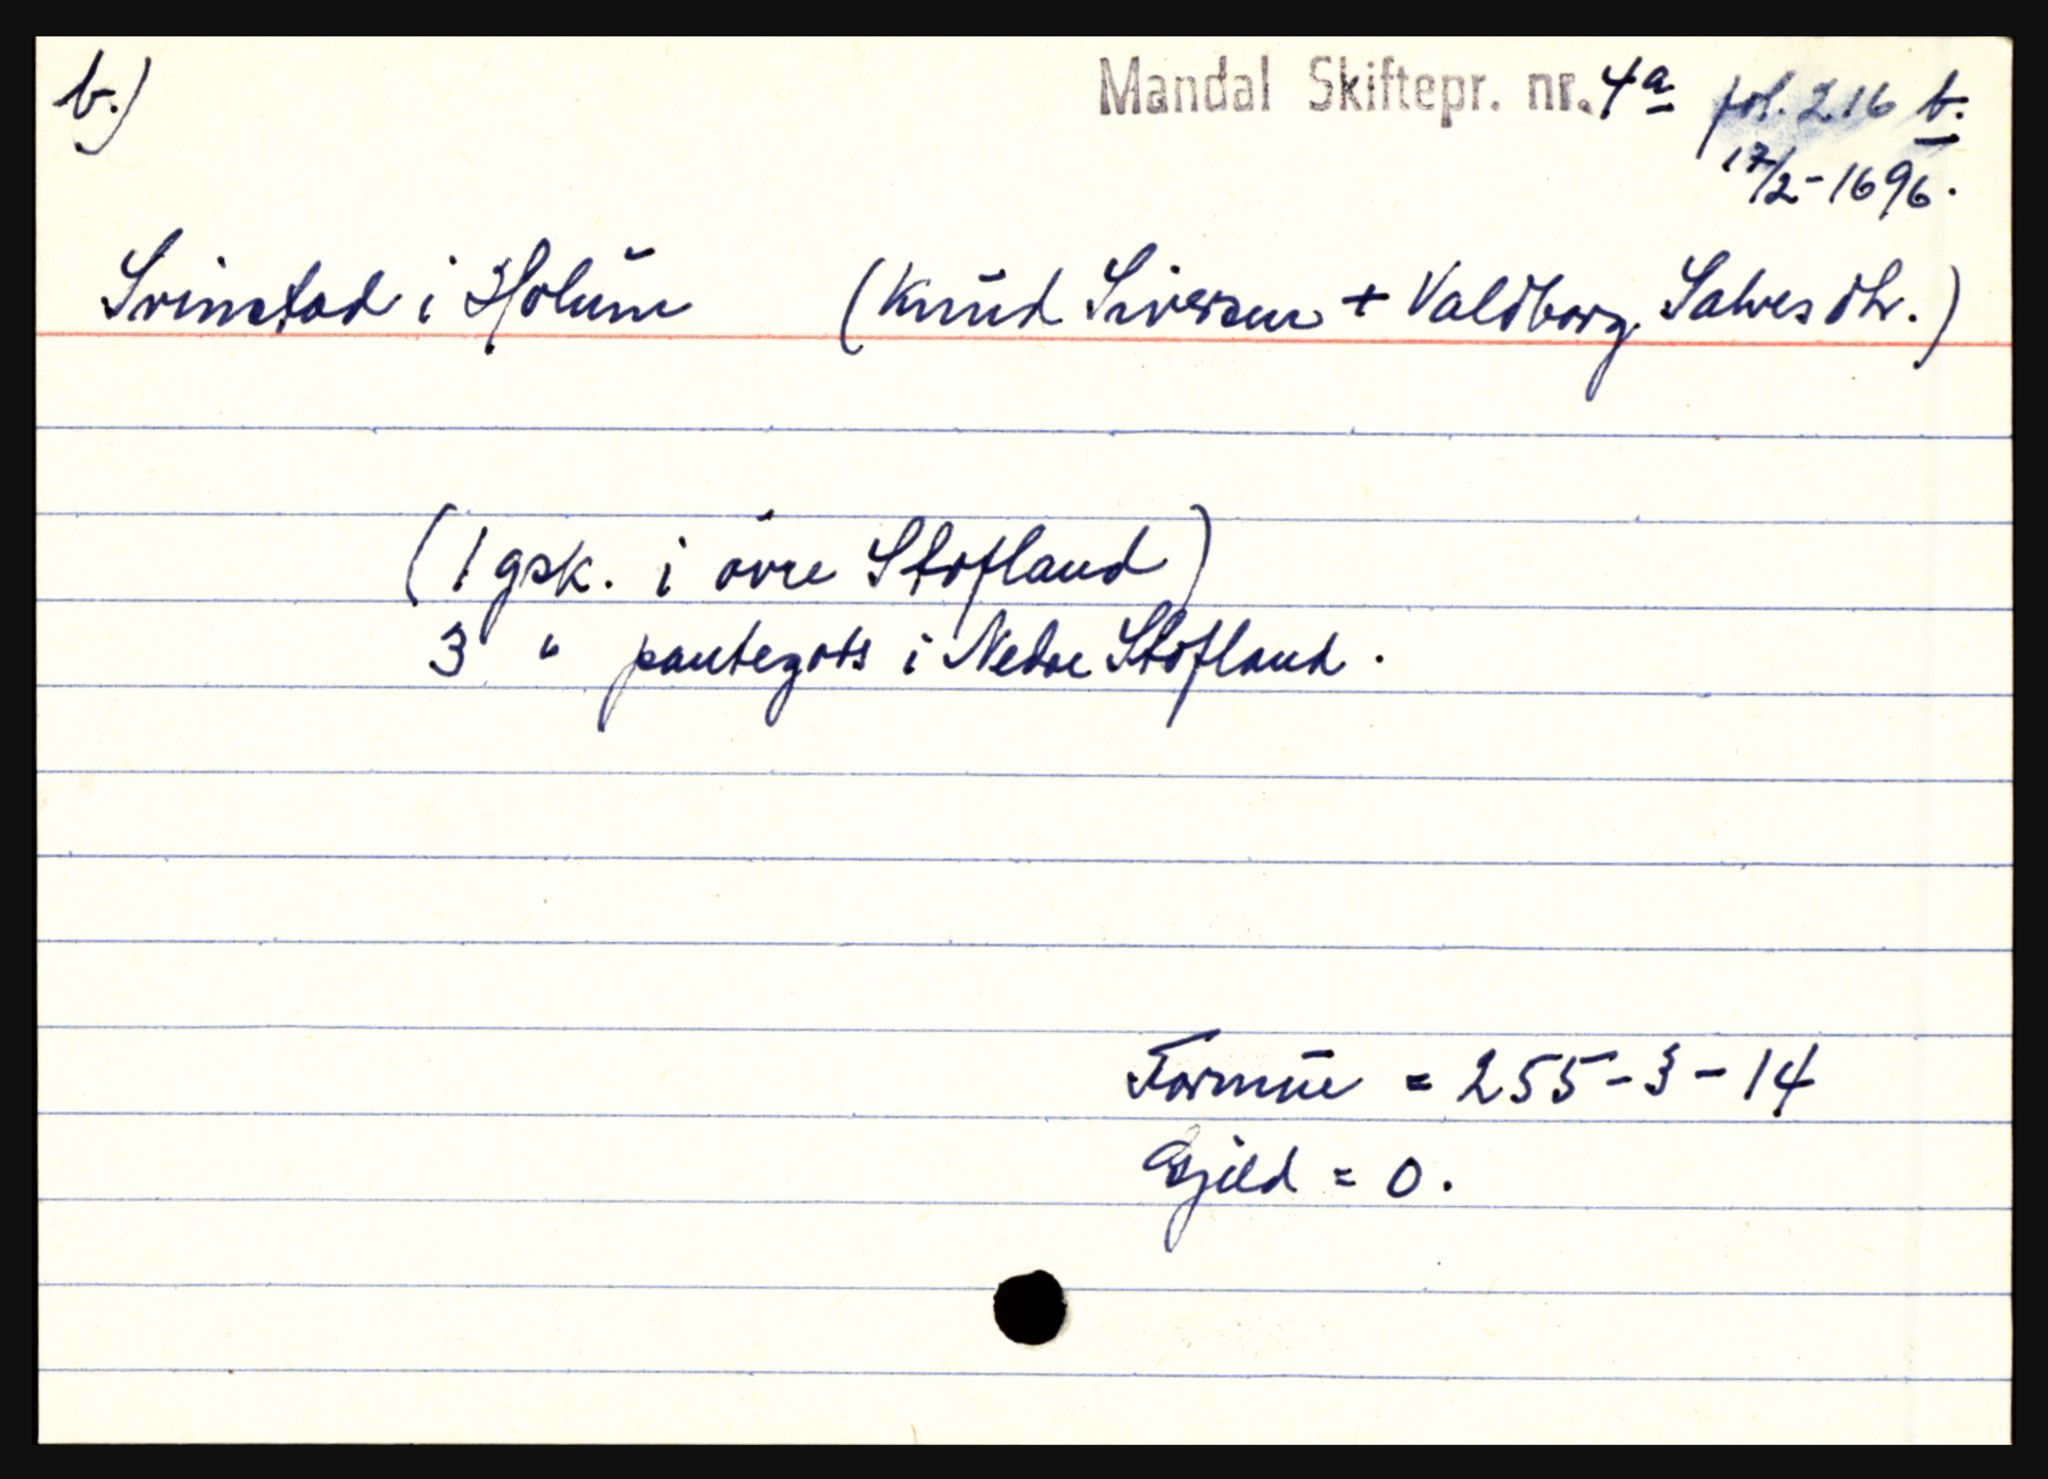 b.) Mandal Skiftepr. nr. 4a fol. 216 b.
17/2-1696.
Svinstad i Holum (Knud Siversen + Valdborg Salvesdtr.)
(1 gsk. i øvre Støfland)
3 " pantegods i Nedre Støfland.
Formue = 255-3-14
Gjeld = 0.